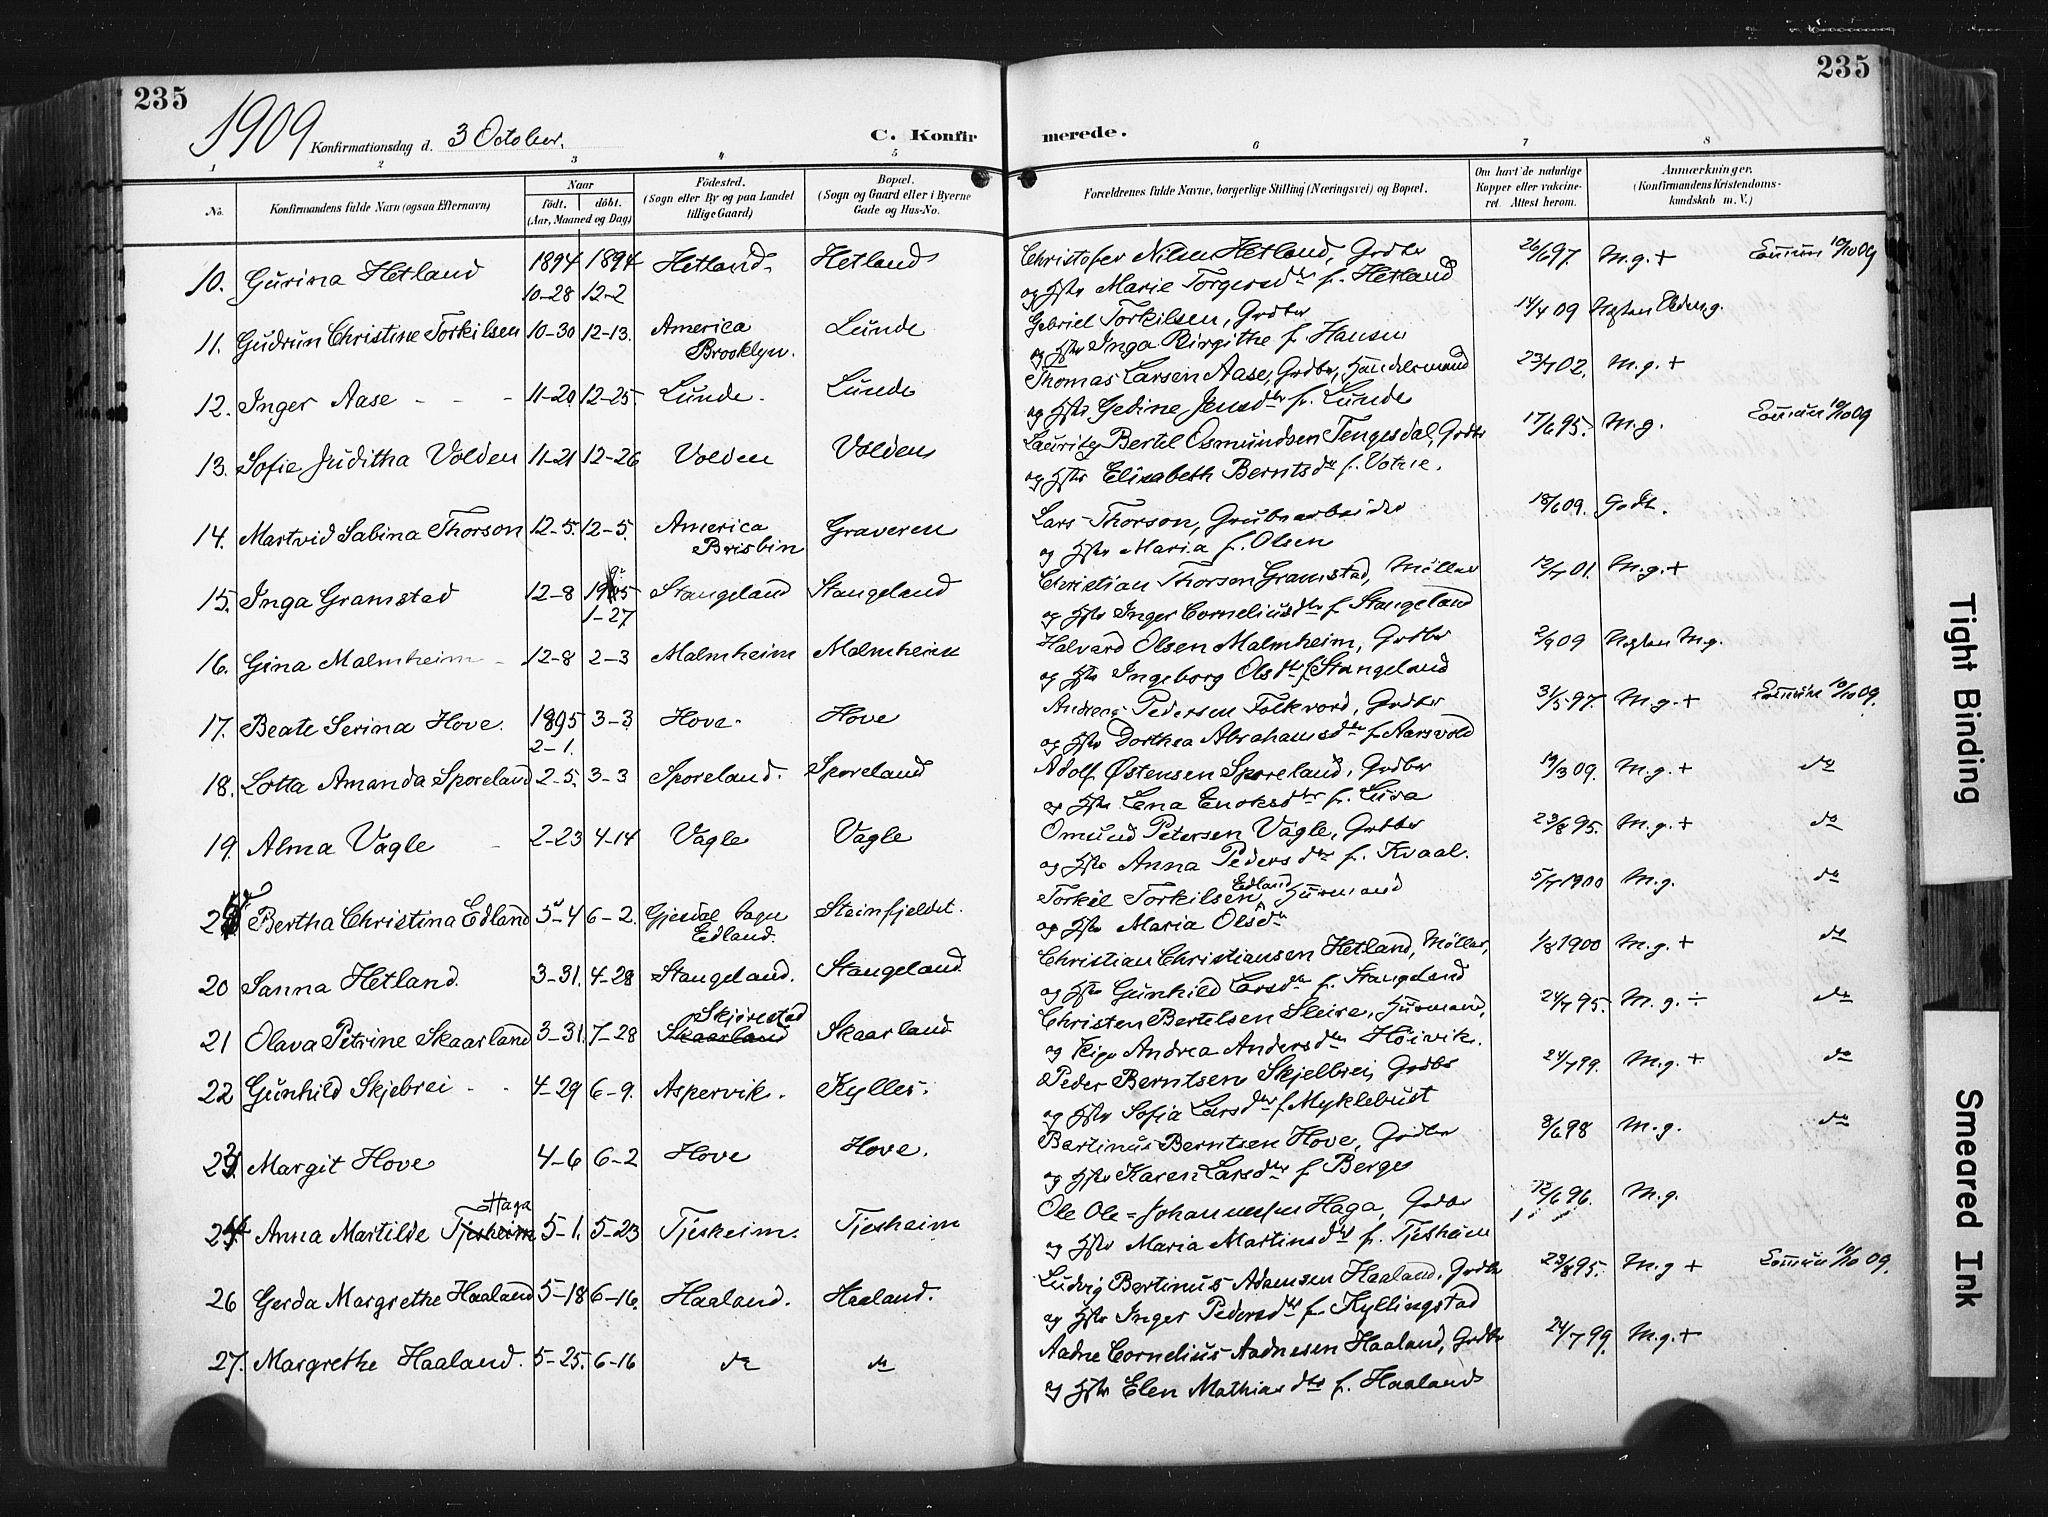 235
235
1909 Konfirmationsdag d. 3 October.
C. Konfirmerede.
1 2 3 4 5 6 7 8
No.
Konfirmandens fulde Navn (ogsaa Efternavn)
Naar
født. døbt.
(Aar, Maaned og Dag)
Fødested.
(Sogn eller By og paa Landet
tillige Gaard)
Bopæl.
(Sogn og Gaard eller i Byerne
Gade og Hus-No.
Forældrenes fulde Navne, borgerlige Stilling (Næringsvei) og Bopæl.
Om havt de naturlige
Kopper eller vakcine-
ret. Attest herom.
Anmærkninger.
(Konfirmandens Kristendoms-
kundskab m. V.)
10. Gurina Hetland 1894 10-28 1894 12-2 Hetland. Hetland
Christofer Nilsen Hetland, Grdbr 26/6 97. M.g.+ 10/10 09
og Hstr Marie Torgersdtr f. Hetland
11. Gudrun Christine Torkilsen 10-30 12-13. America Brooklyn. Lunde
Gabriel Torkilsen, Grdbr 14/4 09
og Hstr Inga Birgithe f. Hansen
12. Inger Aase - - - 11-20. 12-25. Lunde. Lunde
Thomas Larsen Aase, Grdbr, Handelsmand 23/7 02. M.g.+
og Hstr Gedine Jensdtr f. Lunde
13. Sofie Juditha Volden 11-21 12-26 Volden Volden
Lauritz Bertel Osmundsen Tengesdal, Grdbr 17/6 95. M.g. 10/10 09
og Hstr Elisabeth Berntsdtr f. Votne.
14. Martvid Sabina Thorson 12-5. 12-5. America Brisbin Graveren
Lars Thorson, Grubearbeider 18/6 09. Godt.
og Hstr Maria f. Olsen
15. Inga Gramstad 12-8 1895 1-27 Stangeland Stangeland
Christian Thorsen Gramstad, Møller 12/7 01. M.g.+
og Hstr Inger Corneliusdtr f. Stangeland
16. Gina Malmheim - 12-8 2-3 Malmheim Malmheim
Halvard Olsen Malmheim, Grdbr 2/9 09 Næsten M.g.
og Hstr Ingeborg Olsdtr f. Stangeland
17. Beate Serina Hove. 1895 2-1. 3-3 Hove. Hove
Andreas Pedersen Folkvord, Grdbr 31/5 97. M.g.+ 10/10 09.
og Hstr Dorthea Abrahamsdtr f. Aarsvold
18. Lotta Amanda Sporeland 2-5. 3-3 Sporeland. Sporeland
Adolf Østensen Sporeland, Grdbr 19/3 09. M.g.+ do
og Hstr Lena Enoksdtr f. Lura
19. Alma Vagle - 2-23 4-14 Vagle Vagle
Omund Petersen Vagle, Grdbr 23/8 95. M.g.+ do
og Hstr Anna Pedersdtr f. Kvaal.
Bertha Christina Edland 5-4 6-2. Gjesdal Sogn Edland. Steinfjeldet.
Torkil Torkilsen Edland, Husmand 5/7 1900 M.g. do
og Hstr Maria Olsdtr
20 Sanna Hetland. 3-31. 4-28 Stangeland. Stangeland.
Christian Christiansen Hetland, Møller, 1/8 1900 M.g.+ do
og Hstr Gunhild Larsdtr f. Stangeland
21 Olava Petrine Skaarland 3-31. 7-28 Skjørestad Skaarland Skaarland
Christen Bertelsen Sleire, Husmand, 24/7 95. M.g.÷ do
og Pige Andrea Andersdtr Høivik.
22 Gunhild Skjebrei - - 4-29 6-9. Aspervik. Kylles.
Peder Berntsen Skjelbrei, Grdbr 24/7 99. M.g.+ do
og Hstr Sofia Larsdtr f. Myklebust
23 Margit Hove 4-6 6-2 Hove Hove.
Bertinus Berntsen Hove, Grdbr 8/6 98 M.g. do
og Hstr Karen Larsdtr f. Berge
24 Anna Martilde Tjesheim Haga 5-1. 5-23 Tjesheim. Tjesheim
Ole Ole=Johannessen Haga, Grdbr 12/6 96. M.g.
og Hstr Maria Martinsdtr f. Tjesheim
26 Gerda Margrethe Haaland 5-18 6-16. Haaland. Haaland.
Ludvig Bertinus Adamsen Haaland, Grdbr 23/8 95. M.g+ 10/10 09.
og Hstr Inger Pedersdtr f. Kyllingstad
27. Margrethe Haaland. 5-25. 6-16 do do
Aadne Cornelius Aadnesen Haaland, Grdbr 24/7 99. M.g.+
og Hstr Elen Mathiasdtr f. Haaland
Tight Binding
Smeared Ink